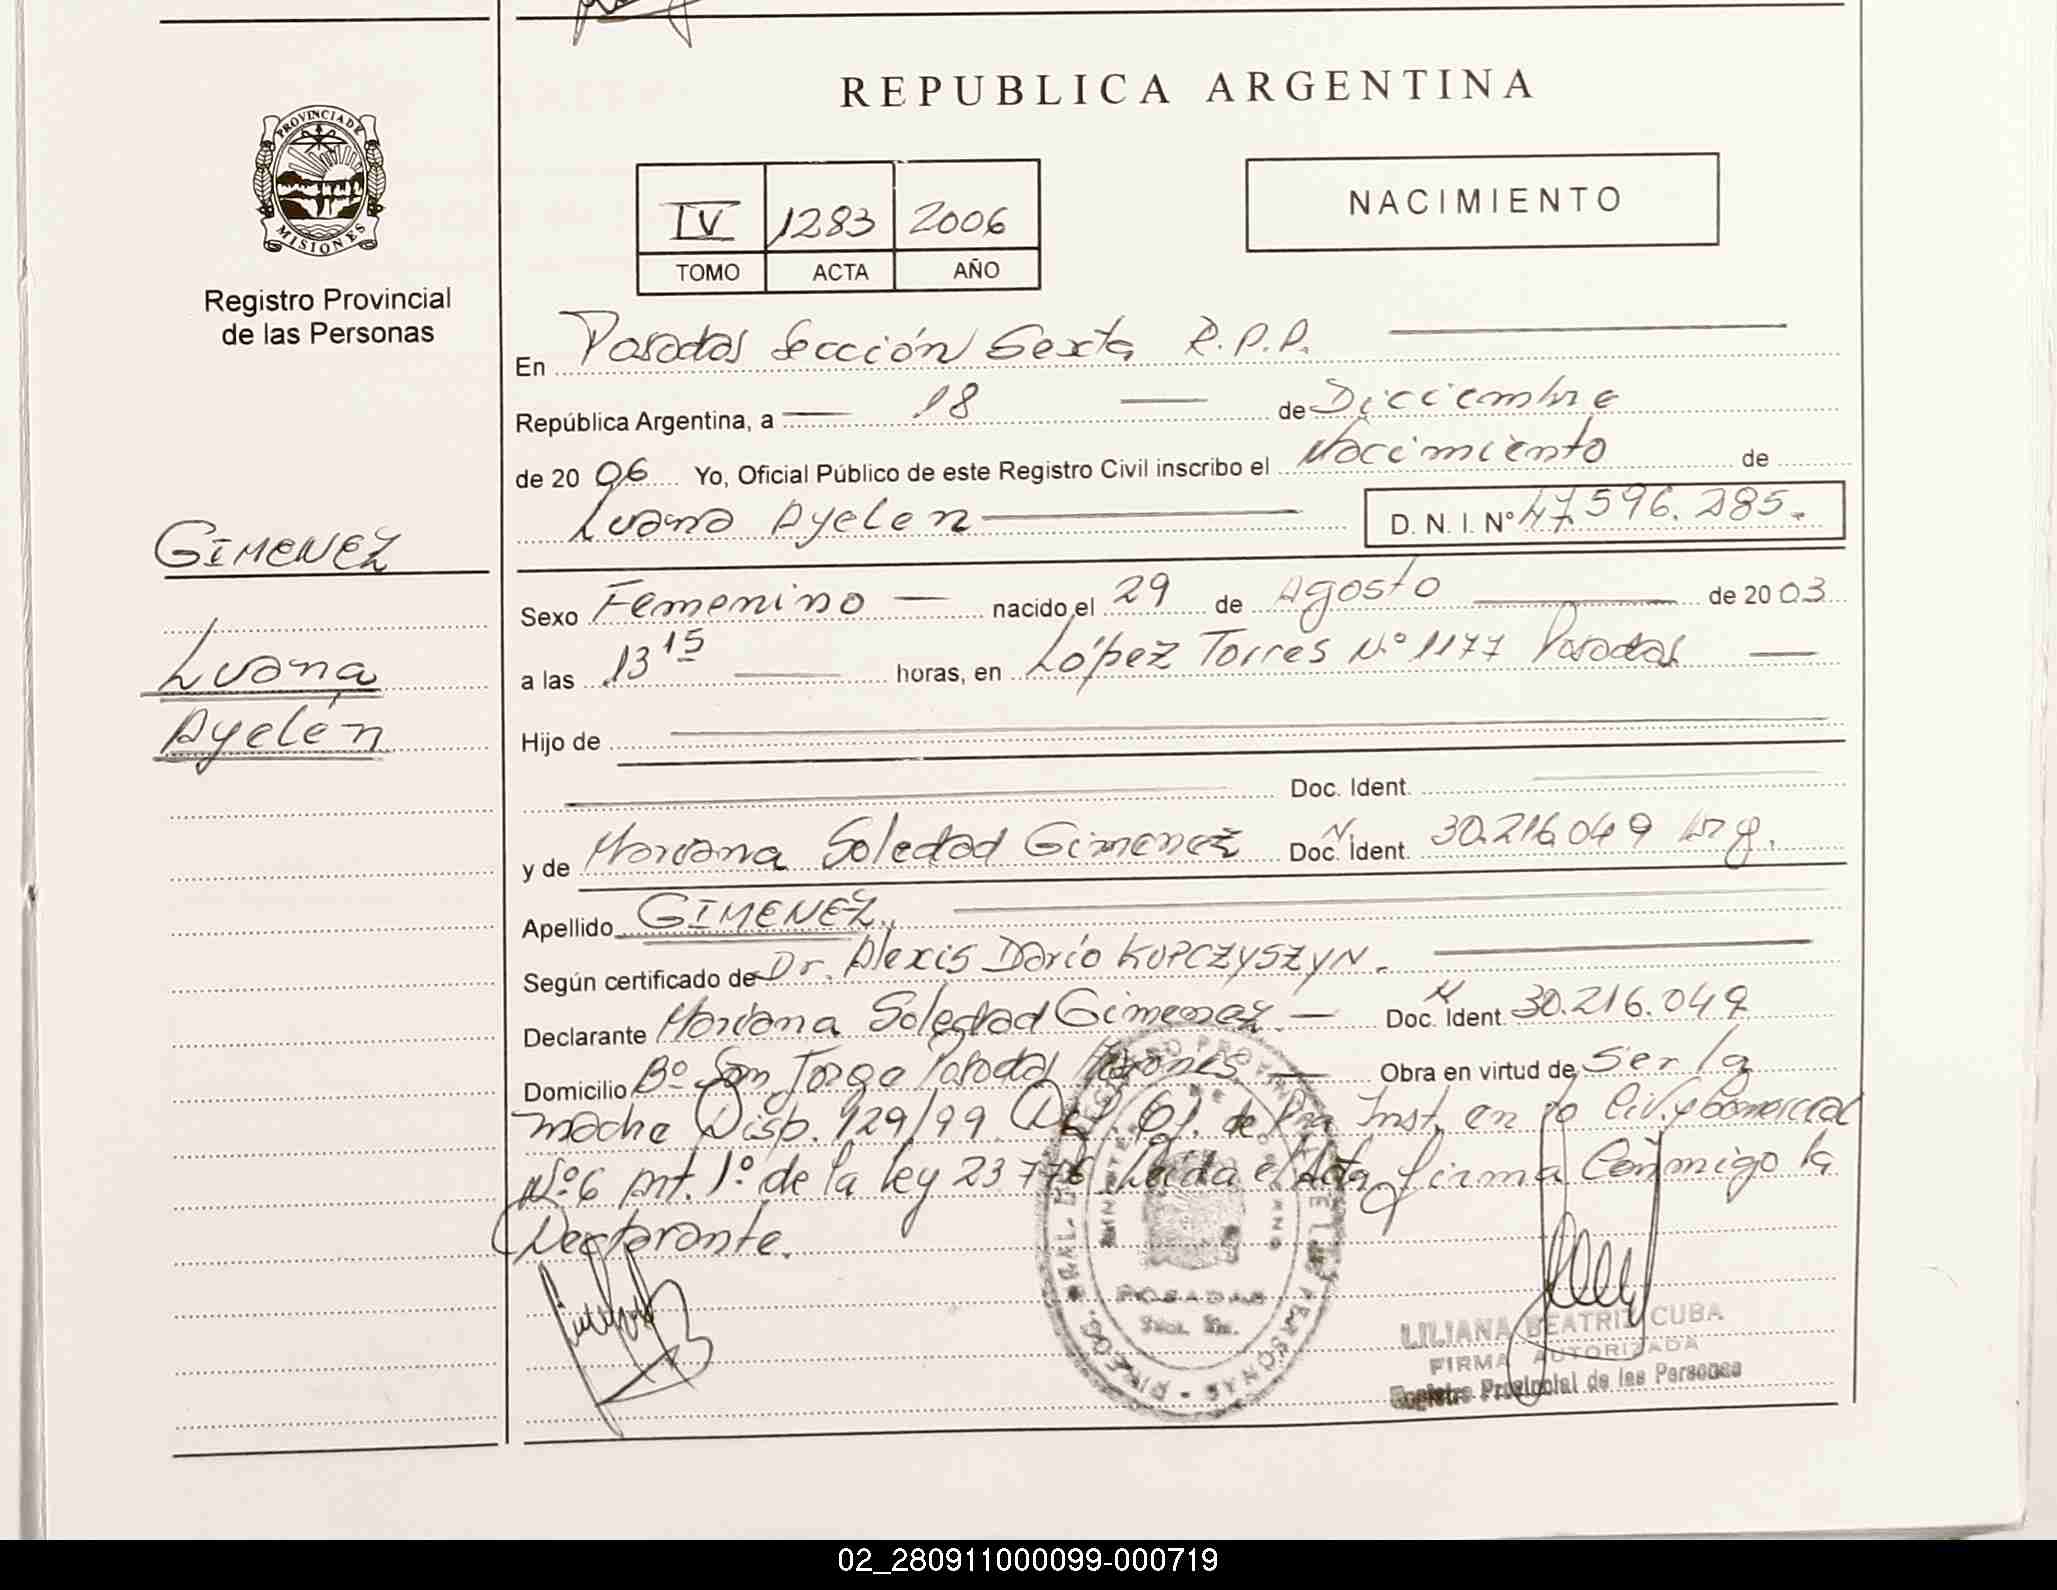 REPUBLICA ARGENTINA
PROVINCIA DE
MISIONES
Registro Provincial
de las Personas
IV 1283 2006
TOMO ACTA AÑO
NACIMIENTO
En Posadas Sección Sexta R.P.P.
República Argentina, a 18 de Diciembre
de 2006 Yo, Oficial Público de este Registro Civil inscribo el Nacimiento de
Luana Ayelen D. N. I. Nº 47.596.285.
GIMENEZ
Luana
Ayelén
Sexo Femenino nacido el 29 de Agosto de 2003
a las 13 15 horas, en López Torres N.º 1177 Posadas
Hijo de
Doc. Ident.
y de Mariana Soledad Gimenez Doc. Ident. 30.216.049
Apellido GIMENEZ
Según certificado de Dr. Alexis Darío KUPCZYSZYN.
Declarante Mariana Soledad Gimenez. Doc. Ident. 30.216.049
Domicilio Bº San Jorge Posadas Misiones Obra en virtud de Ser la
madre Disp. 129/99 de Inst. en lo Civ. y Comercial
Nº 6 Art. 1º de la ley 23776 Leida el Acta firma Conmigo la
Declarante.
POSADAS
LILIANA BEATRIZ CUBA
FIRMA AUTORIZADA
Registro Provincial de las Personas
02_280911000099-000719